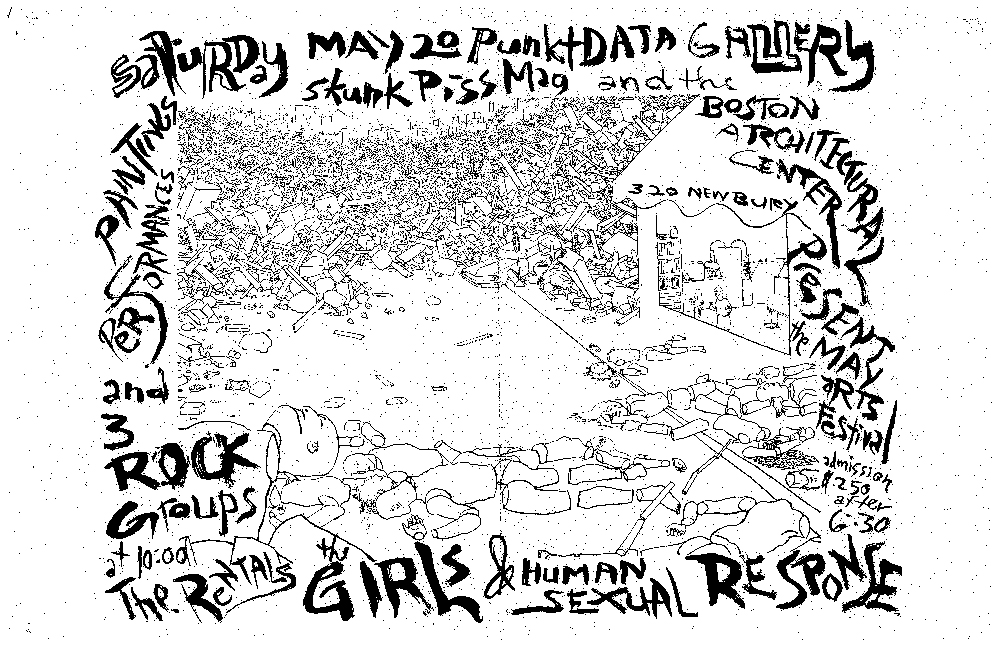 SATURDAY MAY 20 Punkt DATA GALLERY
skunk Piss Mag and the
BOSTON
ARCHITECTURAL
CENTER
320 NEWBURY
PRESENT
the MAY
ARTS
Festival
admission
$2.50
after
6:30
PAINTINGS
PERFORMANCES
and
3
ROCK
Groups
at 10:00
The RENTALS the GIRLS & HUMAN SEXUAL RESPONSE